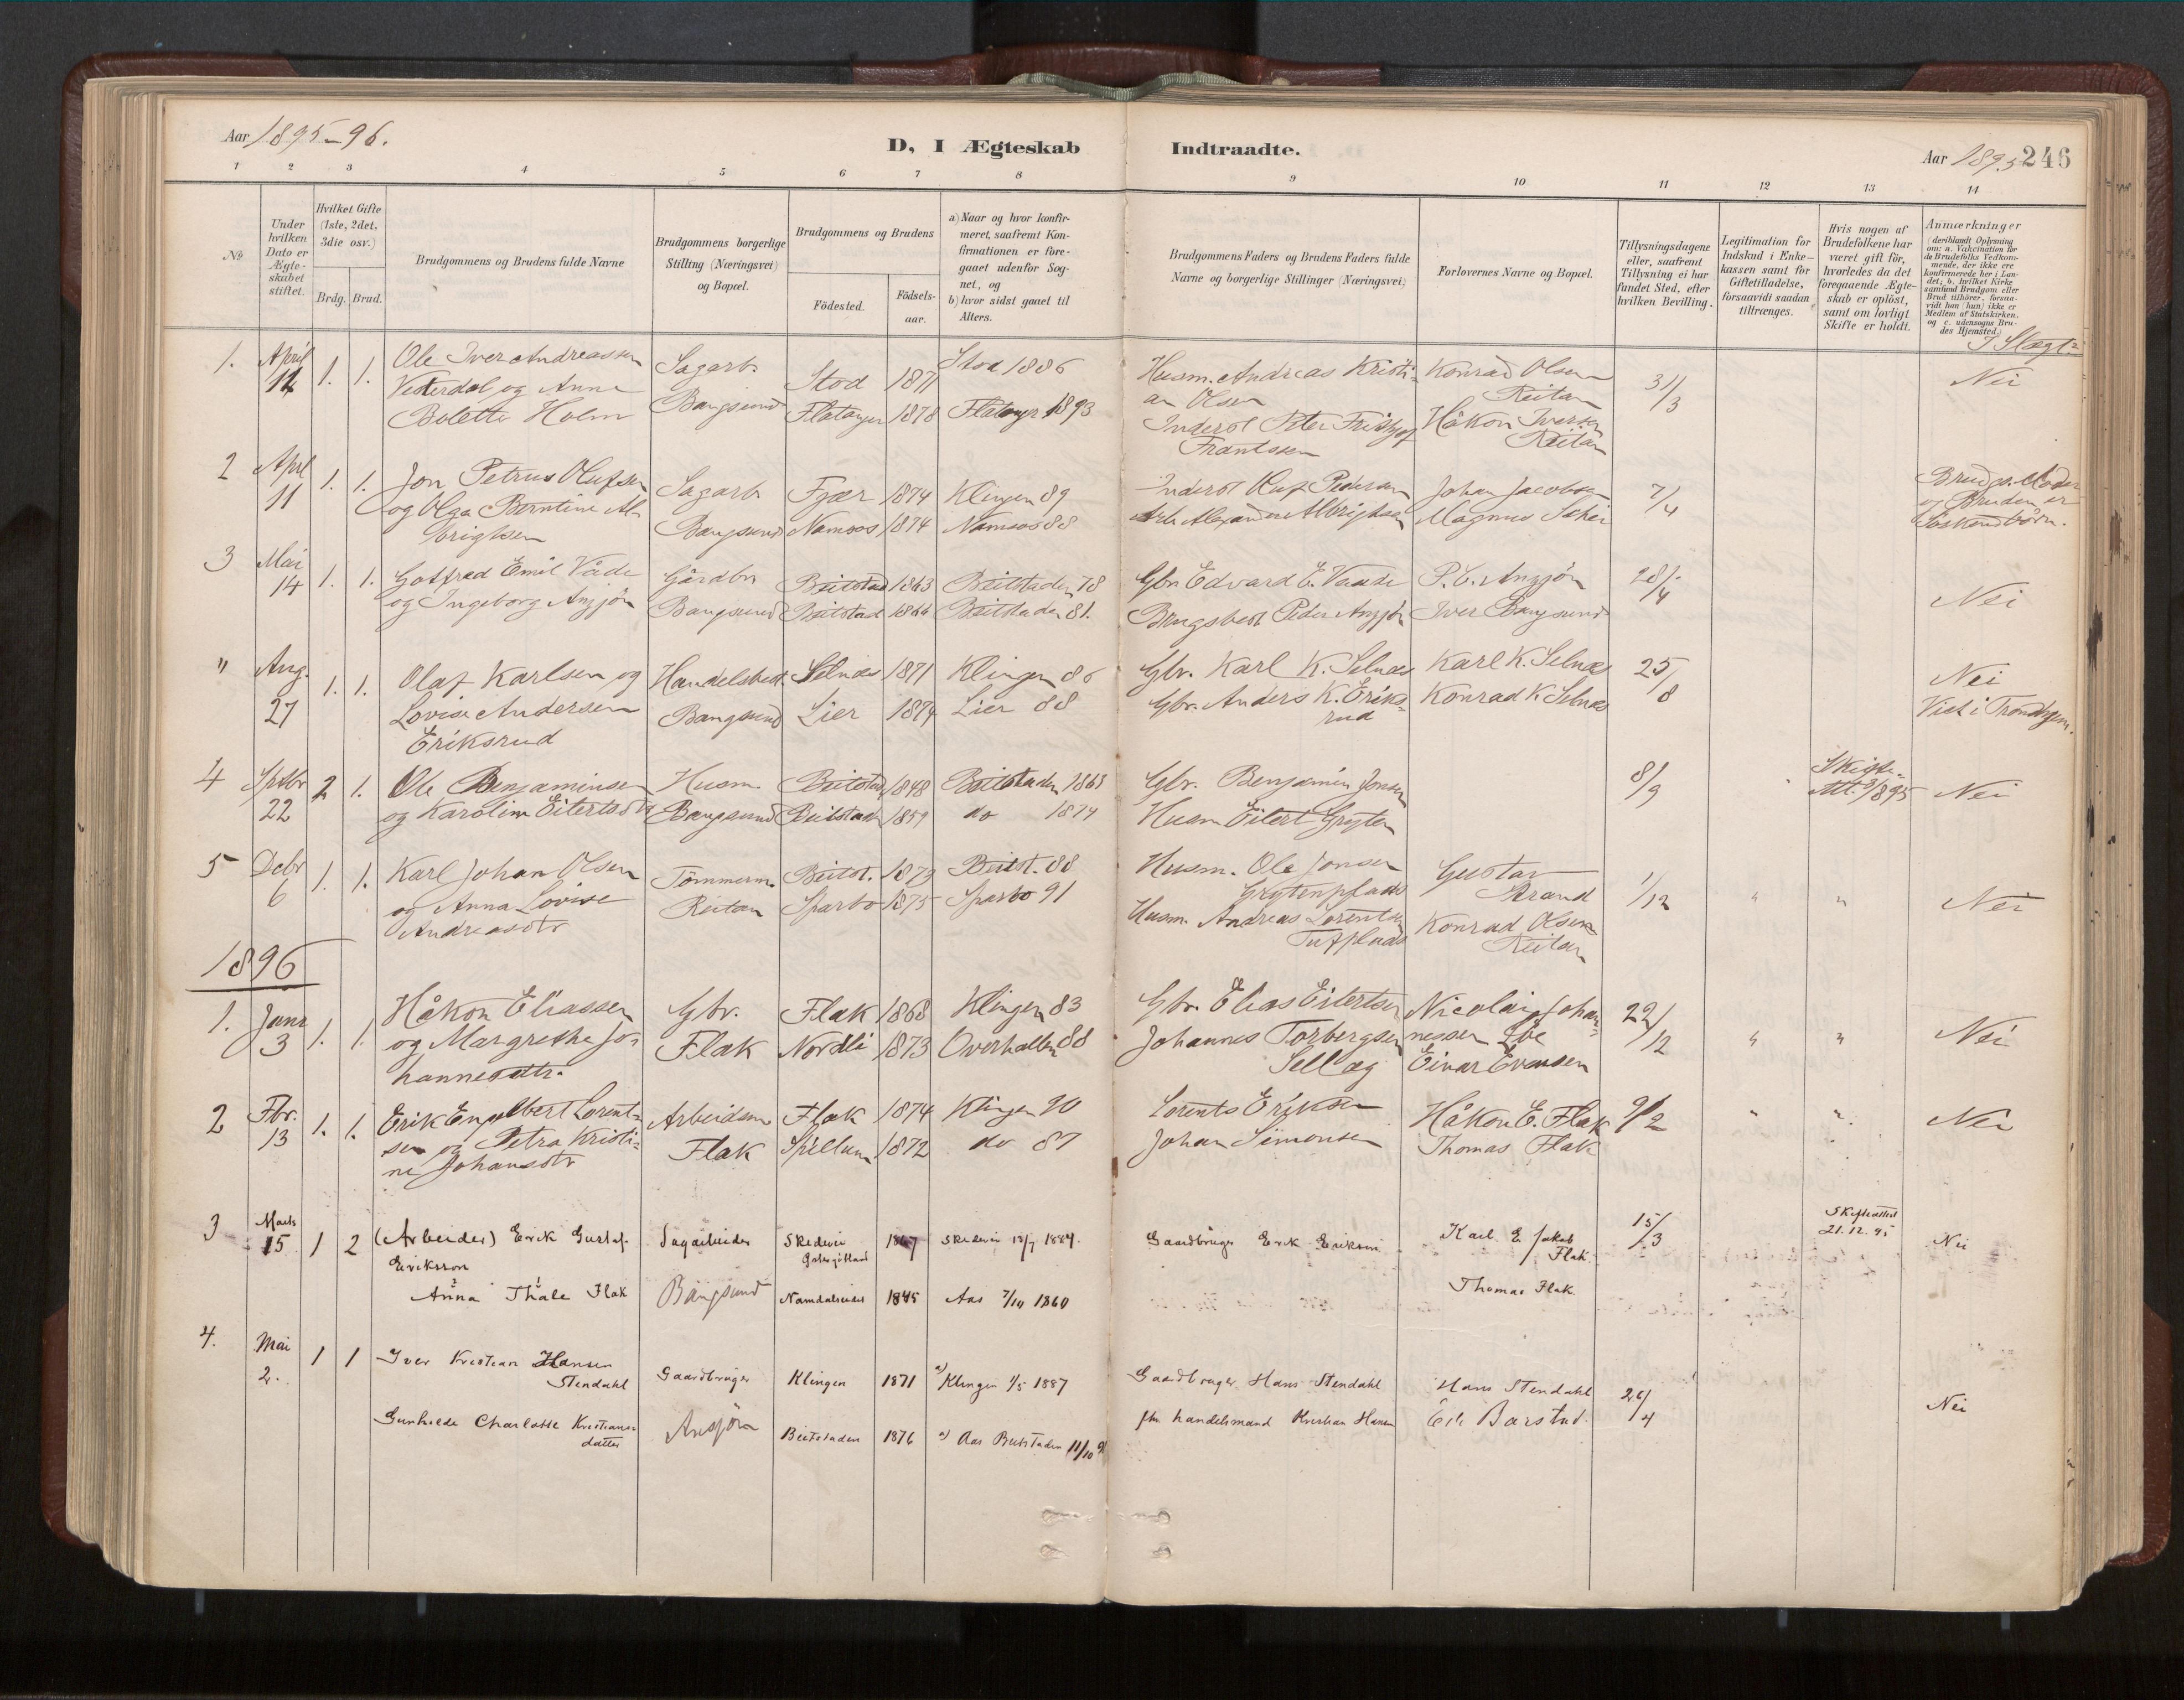 Aar 1895-96.
D, I Ægteskab Indtraadte.
Aar 1895 246
1 2 3 4 5 6 7 8 9 10 11 12 13 14
No
Under hvilken Dato er Ægteskabet stiftet.
Hvilket Gifte (1ste, 2det, 3die osv.)
Brdg. Brud.
Brudgommens og Brudens fulde Navne
Brudgommens borgerlige Stilling (Næringsvei) og Bopæl.
Brudgommens og Brudens
Födested.
Födselsaar.
a) Naar og hvor konfirmeret, saafremt Konfirmationen er foregaaet udenfor Sognet, og
b) hvor sidst gaaet til Alters.
Brudgommens Faders og Brudens Faders fulde Navne og borgerlige Stillinger (Næringsvei)
Forlovernes Navne og Bopæl.
Tillysningsdagene eller, saafremt Tillysning ei har fundet Sted, efter hvilken Bevilling.
Legitimation for Indskud i Enkekassen samt for Giftetilladelse, forsaavidt saadan tiltrænges.
Hvis nogen af Brudefolkene har været gift för, hvorledes da det foregaaende Ægteskab er oplöst, samt om lovligt Skifte er holdt.
Anmærkninger
(deriblandt Oplysning om: a. Vakcination for de Brudefolks Vedkommende, der ikke ere konfirmerede her i Landet; b. hvilket Kirkesamfund Brudgom eller Brud tilhörer, forsaavidt han (hun) ikke er Medlem af Statskirken. og c. udensogns Brudes Hjemsted.)
I Slægt?
1. April 12 1. 1. Ole Iver Andreassen Sagarb. Stod 1871 Stod 1886 Husm. Andreas Kristi- Konrad Olsen 31/3 Nei
Vederdal og Anne Bangsund Flatanger 1878 Flatanger 1893 an Olsen Reitan
Bolette Holm Inderst Peter Fridtjof Håkon Iversen
Frantssen Reitan
2 Apl 11 1. 1. Jon Petrus Olufsen Sagarb Fjær 1874 Klingen 89 Inderst Oluf Pedersen Johan Jacobsen 7/4 Brudg. Moder
og Olga Berntine Al- Bangsund Namsos 1874 Namsos 88 Arb. Alexander Albrigtsen Magnus og Bruden er
brigtsen Söskendbörn.
3 Mai 14 1. 1. Gotfred Emil Våde Gårdbr Beitstad 1863 Beitstaden 78 Gbr. Edvard E. Vaade P. C. Anzjön 28/4
og Ingeborg Anzjön Bangsund Beitstad 1866 Beitstaden 81. Brugsbest Peder Anzjön Iver Bangsund Nei
" Aug. 27 1. 1. Olaf Karlsen og Handelsbest Selnæs 1871 Klingen 86 Gbr. Karl K. Selnæs Karl K. Selnæs 25/8 Nei
Lovise Andersen Bangsund Lier 1874 Lier 88 Gbr. Anders K. Eriks- Konrad K. Selnæs Viet i Trondhjem.
Eriksrud rud
4 Sptbr 22 2 1. Ole Benjaminsen Husm. Beitstad 1848 Beitstaden 1863 Gbr. Benjamin Jonsen 8/9 Skifte- Nei
og Karoline Eilertsdtr Bangsund Beitstad 1859 do 1874 Husm Eilert Gryten Att. 9/8 95
5 Debr 6 1. 1. Karl Johan Olsen Tömmerm. Beitst. 1873 Beitst. 88 Husm. Ole Jonsen Gustav 1/12 " " Nei
og Anna Lovise Reitan Sparbo 1875 Sparbo 91 Grytenplads Strand
Andreasdtr Husm. Andreas Lorentsen Konrad Olsen
Tufplads Reitan
1896
1. Janr 3 1. 1. Håkon Eliassen Gbr. Flak 1868 Klingen 83 Gbr. Elias Eilertsen Nicolai Johan- 22/12 " " Nei
og Margrethe Jo- Flak Nordli 1873 Overhallen 88 Johannes Torbergsen nessen
hannesdtr. Sellæg Einar Evensen
2 Fbr. 13 1. 1. Erik Engelbert Lorent- Arbeidsm Flak 1874 Klingen 90 Lorents Eriksen Håkon E. Flak 9/2 " " Nei
sen og Petra Kristi- Flak Spillum 1872 do 87 Johan Simonsen Thomas Flak
ne Johansdtr
3 Marts 15 1 2 (Arbeider) Erik Gustaf Sagarbeider Skedevi 1867 Skedevi 13/7 1884. Gaardbruger Erik Eriksson Karl E. Jakob 15/3 Skifteattest Nei
Eriksson Östergötland Flak. 21.12.95
Anna Thale Flak Bangsund Namdalseidet 1845 Aas 7/10 1860 Thomas Flak
4. Mai 2. 1 1 Iver Kristian Hansen Gaardbruger Klingen 1871 a) Klingen 1/5 1887 Gaardbruger Hans Stendahl Hans Stendahl 26/4 Nei
Stendahl
Gunhilde Charlotte Kristians- Ansjön Beitstaden 1876 a) Aas Beitstaden 11/10 91 fhv. handelsmand Kristian Hansen Barstad.
datter